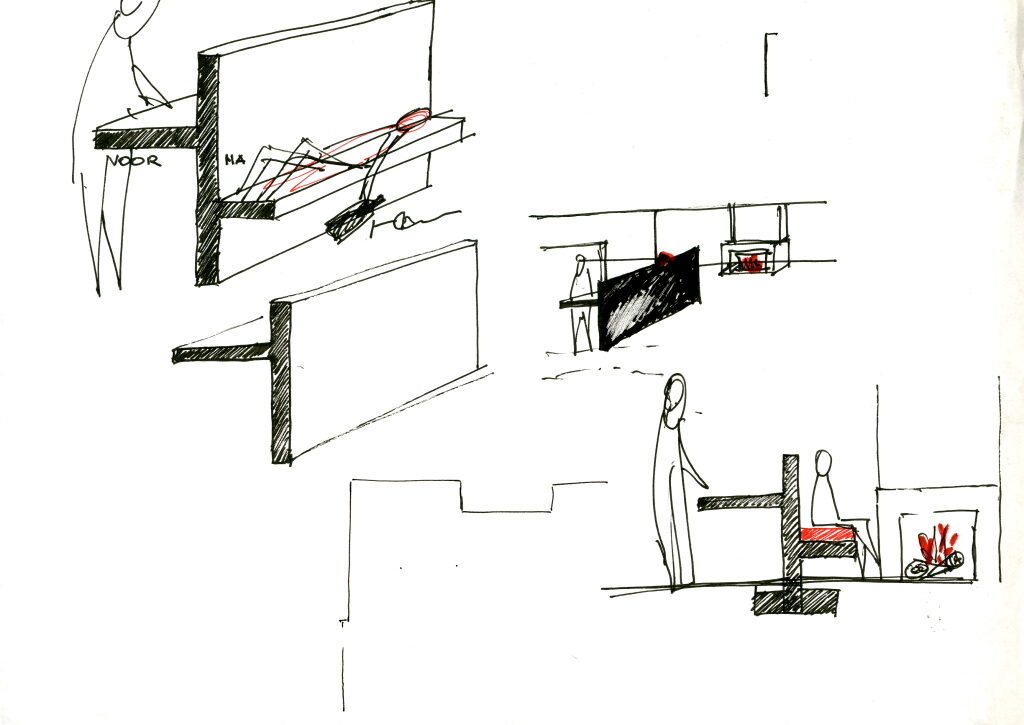 NOOR
MA